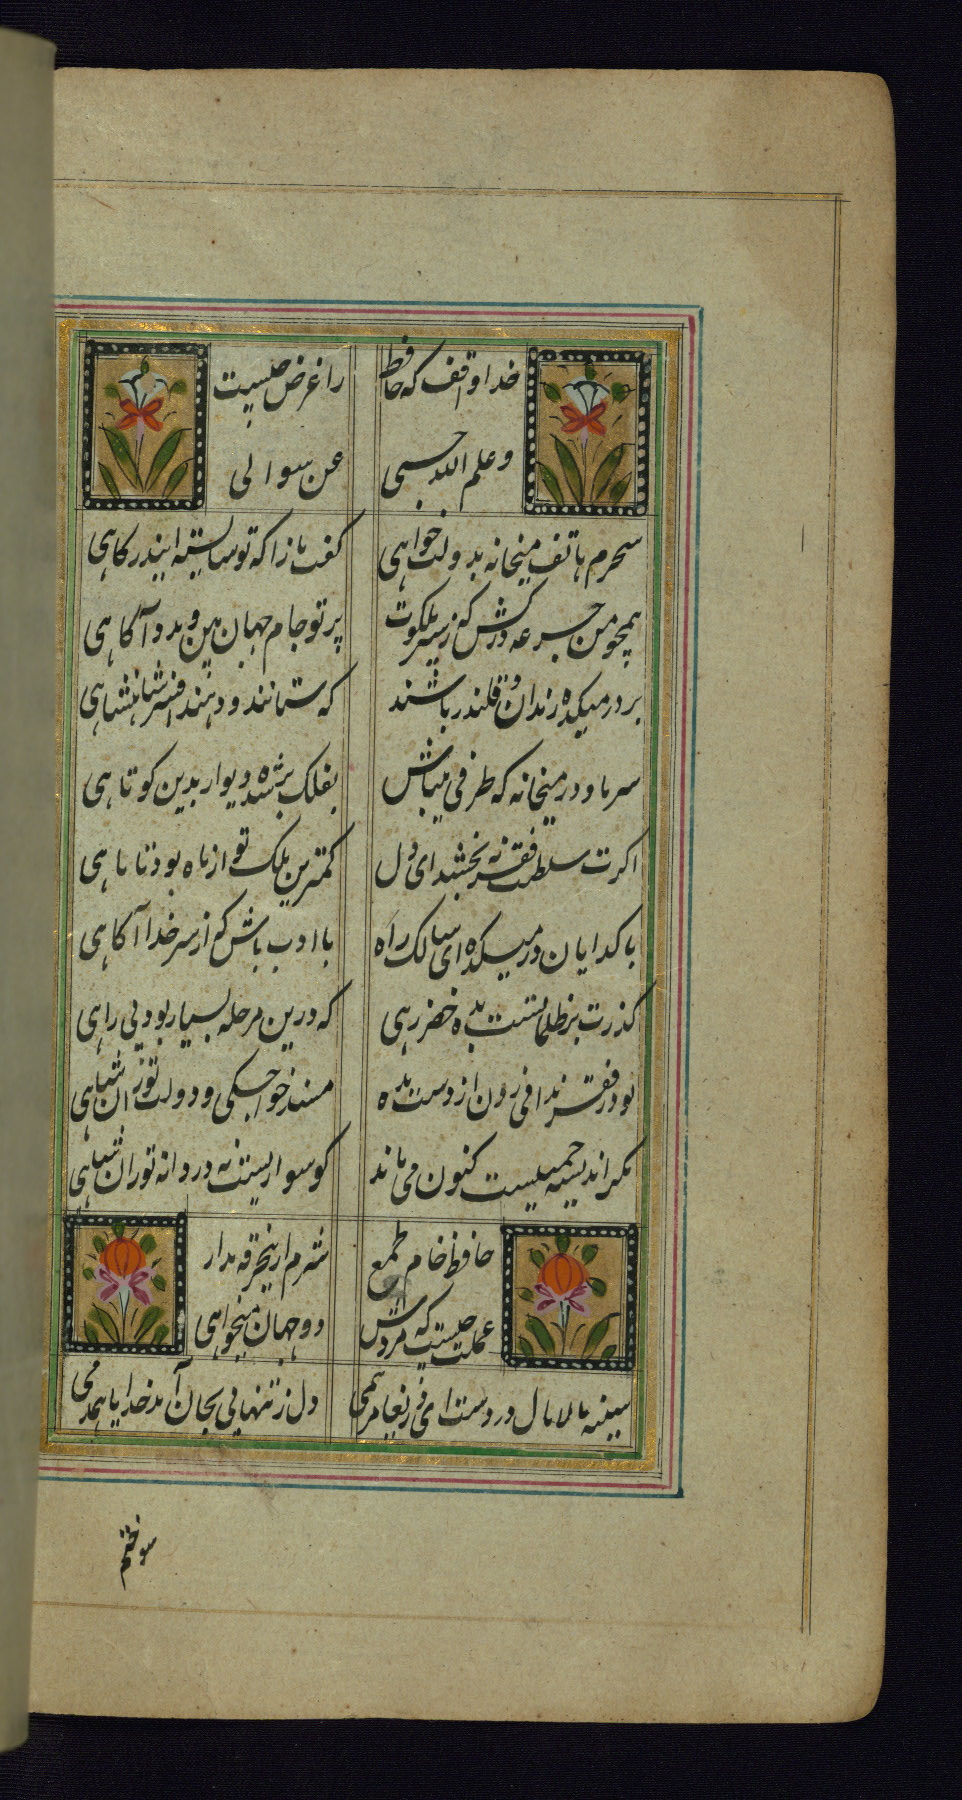 خدا واقف که حافظ را غرض چیست
و علم الله حسبی عن سوالی
سحرم هاتف میخانه بدولت خواهی کفت باز آ که تو شایسته ایندرکاهی
همچو من جرعه درکش که ز سر ملکوت پرتو جام جهان بین دهدت آکاهی
بر در میکده رندان قلندر باشند که ستانند و دهند افسر شاهنشاهی
سر ما و در میخانه که طرف بامش بفلک بر شده دیوار بدین کوتاهی
اکرت سلطنت فقر بخشند ای دل کمترین ملک تو از ماه بود تا ماهی
با کدایان در میکده ای سالک راه با ادب باش کر از سر خدا آکاهی
کذرت بر ظلماتست بده خضر رهی که درین مرحله بسیار بود بی راهی
تو در فقر ندانی زدن از دست مده مسند خواجکی و دولت توران شاهی
مکر اندیشه کنون می ماند
حافظ خام طمع شرم ازینخرقه مدار
عملت چیست که مزدش دو جهان میخواهی
سینه مالامال دردست ای دریغا مرهمی دل ز تنهایی بجان آمد خدا یا همدمی
سوختم